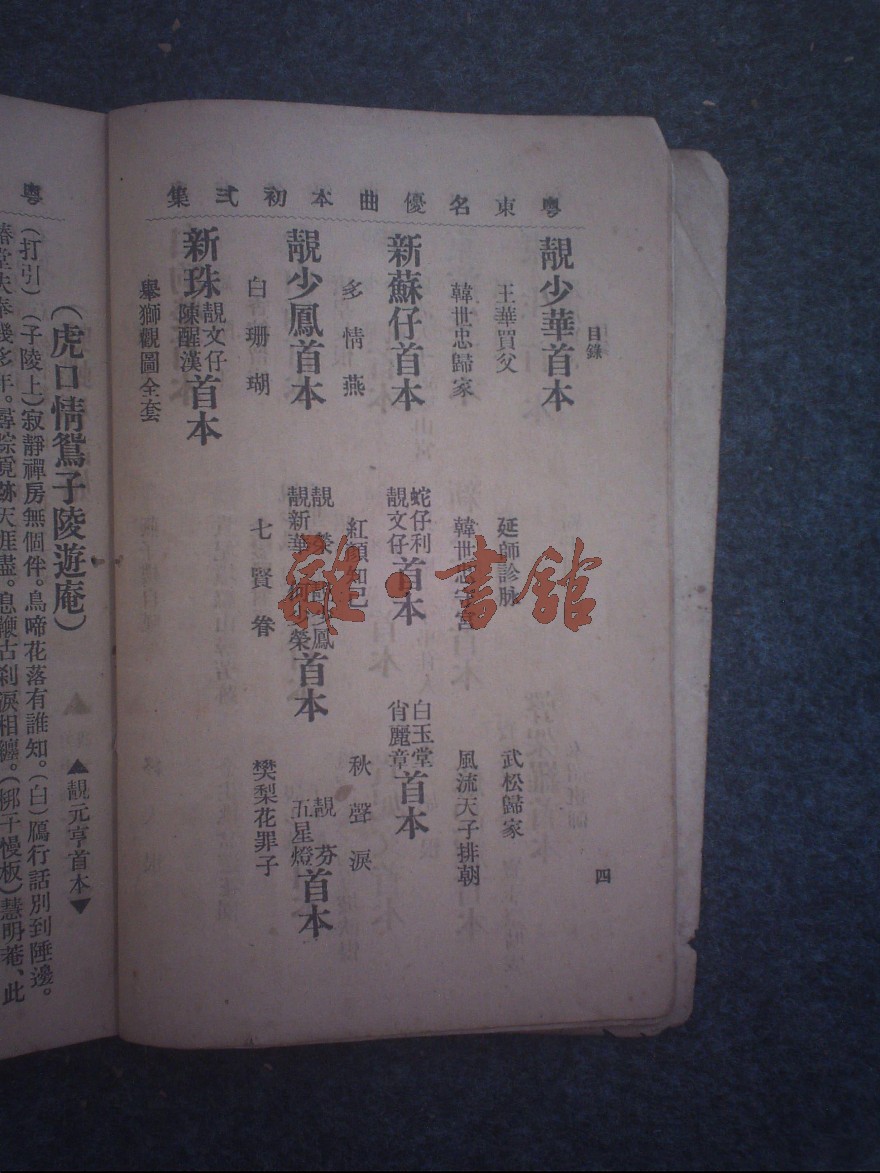 粵東名優曲本初弍集
目錄
四
靚少華首本
王華買父
延師診脉
武松歸家
韓世忠歸家
韓世忠守宮
風流天子排朝
新蘇仔首本
蛇仔利靚文仔首本
白玉堂肖麗章首本
多情燕
紅顏知己
秋聲淚
靚少鳳首本
靚榮靚新華靚少鳳何少榮首本
靚芬五星燈首本
白珊瑚
七賢眷
樊梨花罪子
新珠靚文仔陳醒漢首本
舉獅觀圖全套
雜·書館
粵
(虎口情鴛子陵遊庵)
▲靚元亨首本▼
(打引)(子陵上)寂靜禪房無個伴。鳥啼花落有誰知。(白)鴈行話別到陲邊。
椿堂失奉幾多年。尋踪覓跡天涯盡。息鞭古刹淚相纏。(梆子慢板)慧明菴、此